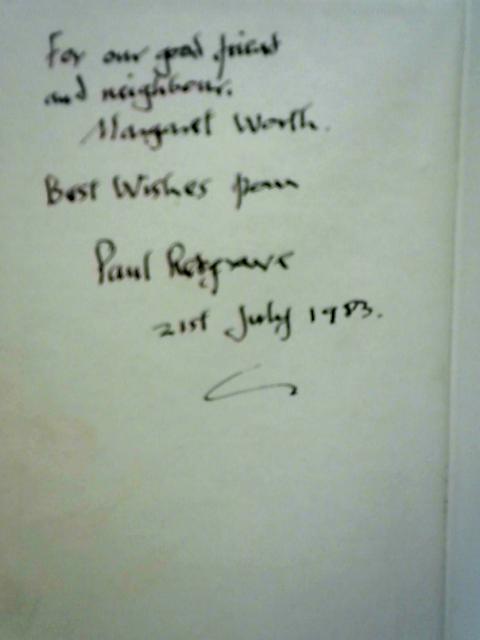 For our good friend
and neighbour.
Margaret Worth.
Best Wishes from
Paul
21st July 1983.